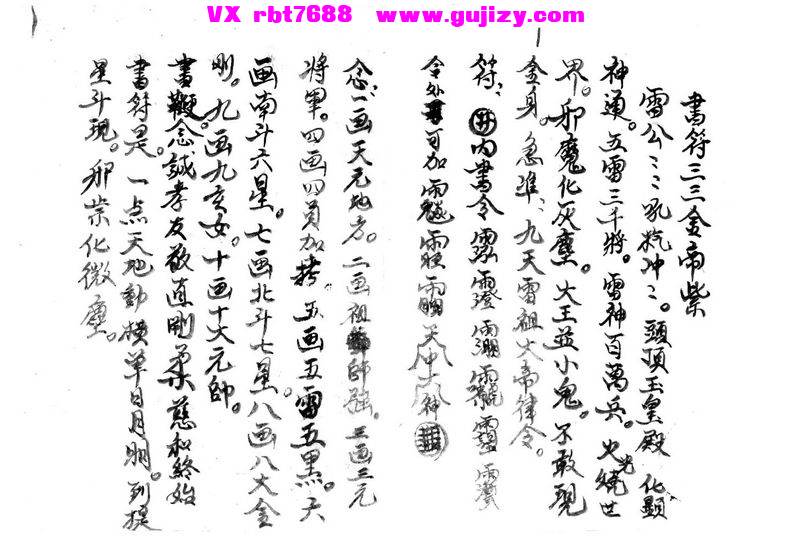 VX rbt7688 www.gujizy.com
書符三三金帝紫
雷公〻〻吼抗冲〻。頭頂玉皇殿 化顯
神通。五雷三千將。雷神百萬兵。火光繞世
界。邪魔化灰塵。大王並小鬼。不敢現
金身。急准〻九天雷祖大帝律令。
符〻 井 内書令
令 可加 天中大神
念〻一画天元地方。二画祖師强。三画三元
將軍。四画四員加持 五画五雷五黑。六
画南斗六星。七画北斗七星。八画八大金
剛。九画九玄女。十画十大元帥。
書鞭念誠孝友敬直剛柔慈和終始
書符是。一点天地動 横草日月明。到提
星斗現。邪祟化微塵。